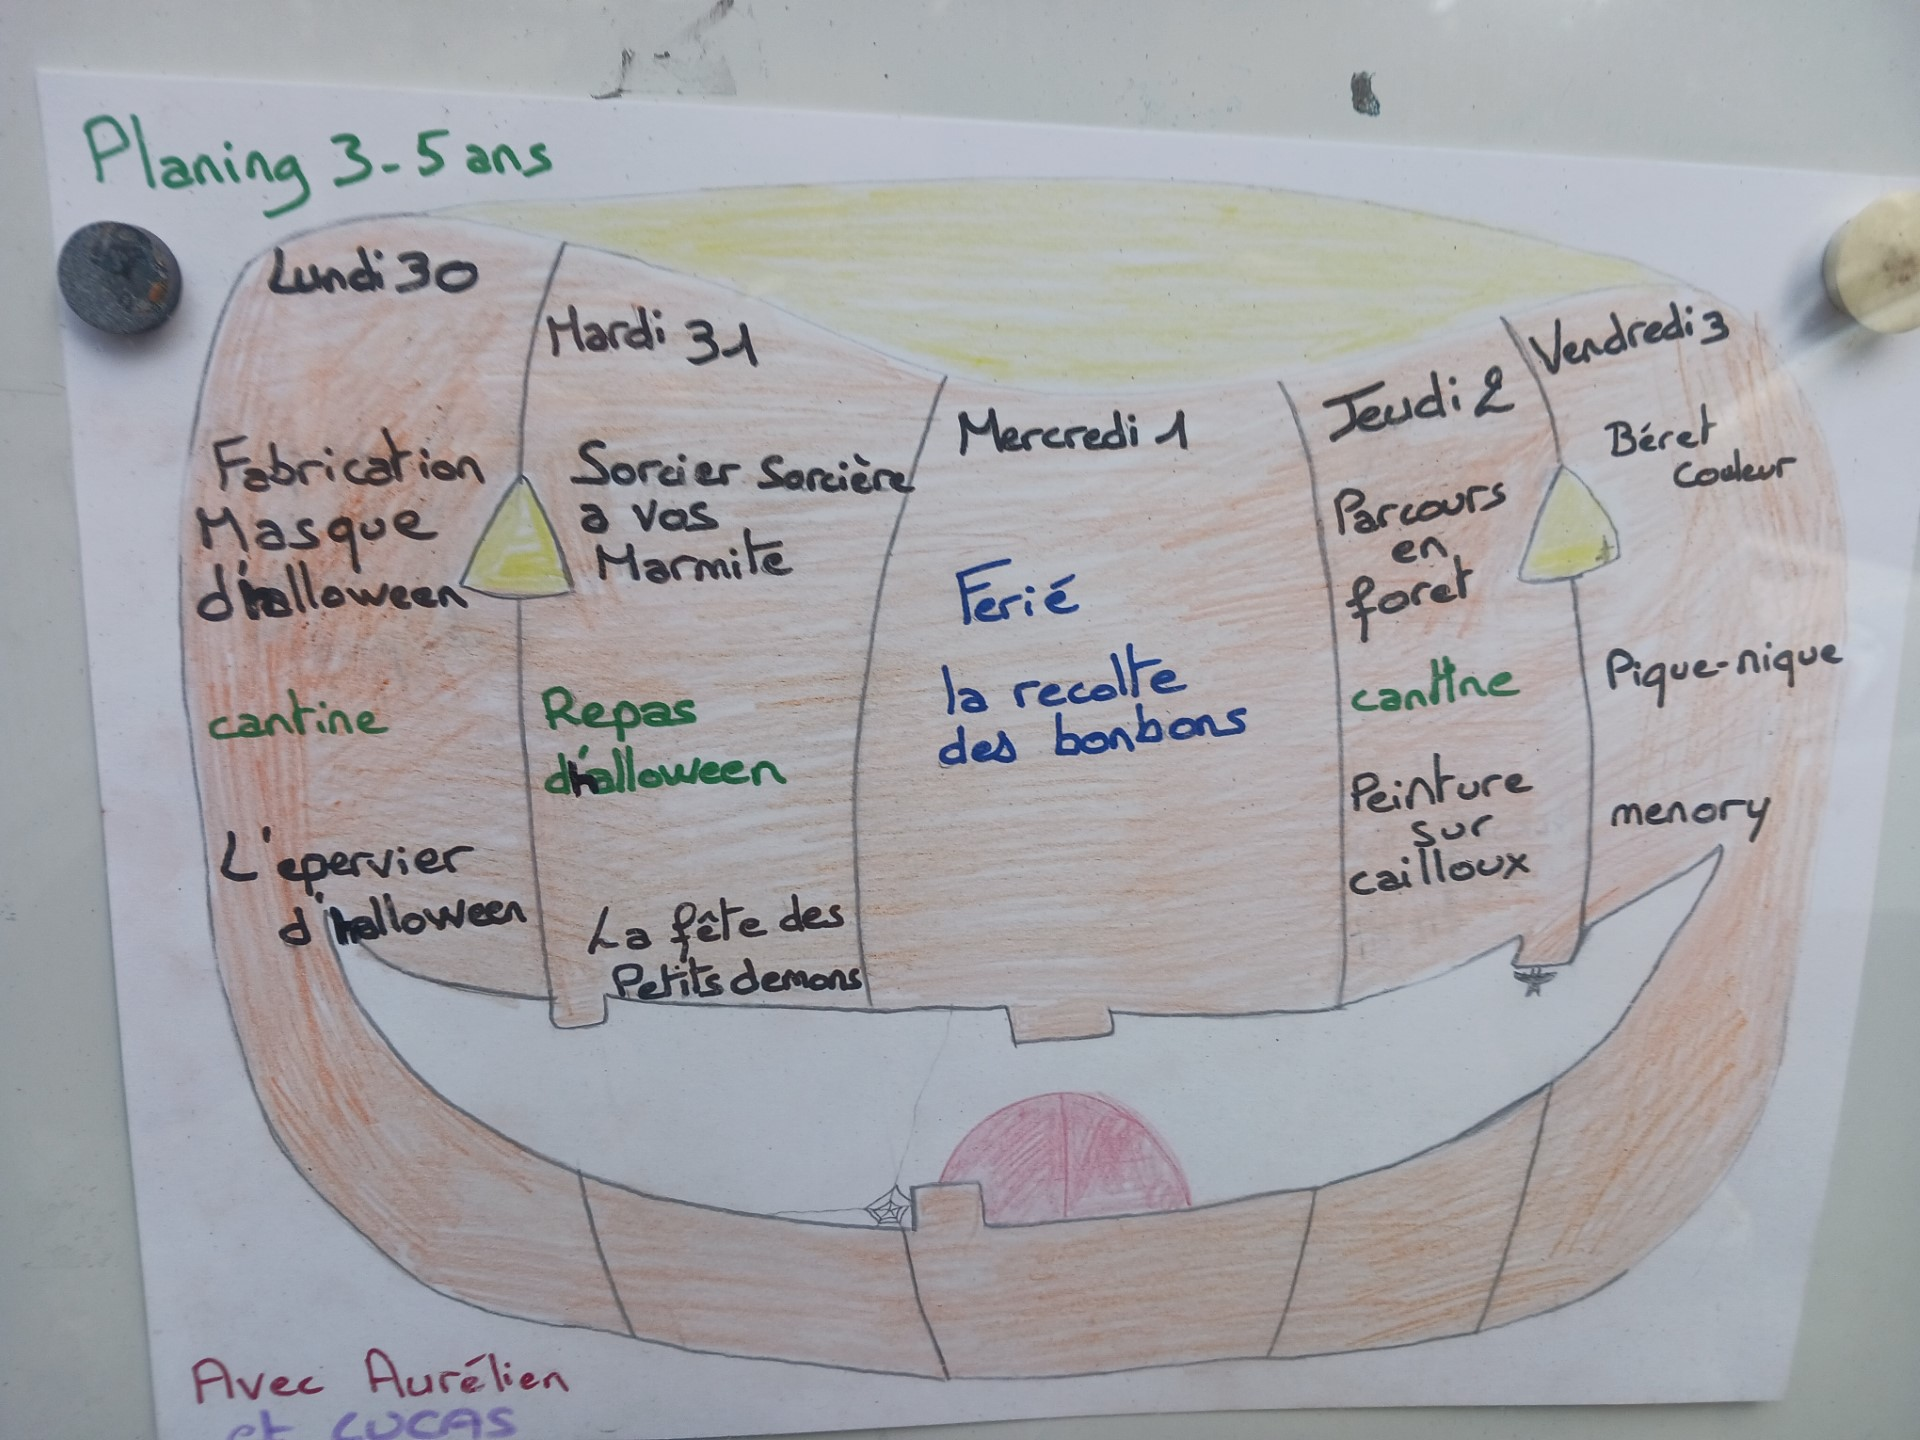 Planing 3-5 ans
Lundi 30
Fabrication
Masque
d'halloween
cantine
L'epervier
d'halloween
Mardi 31
Sorcier Sorcière
a vos
Marmite
Repas
d'halloween
La fête des
Petits demons
Mercredi 1
Ferié
la recolte
des bonbons
Jeudi 2
Parcours
en
foret
cantine
Peinture
sur
cailloux
Vendredi 3
Béret
Couleur
Pique-nique
menory
Avec Aurélien
et LUCAS